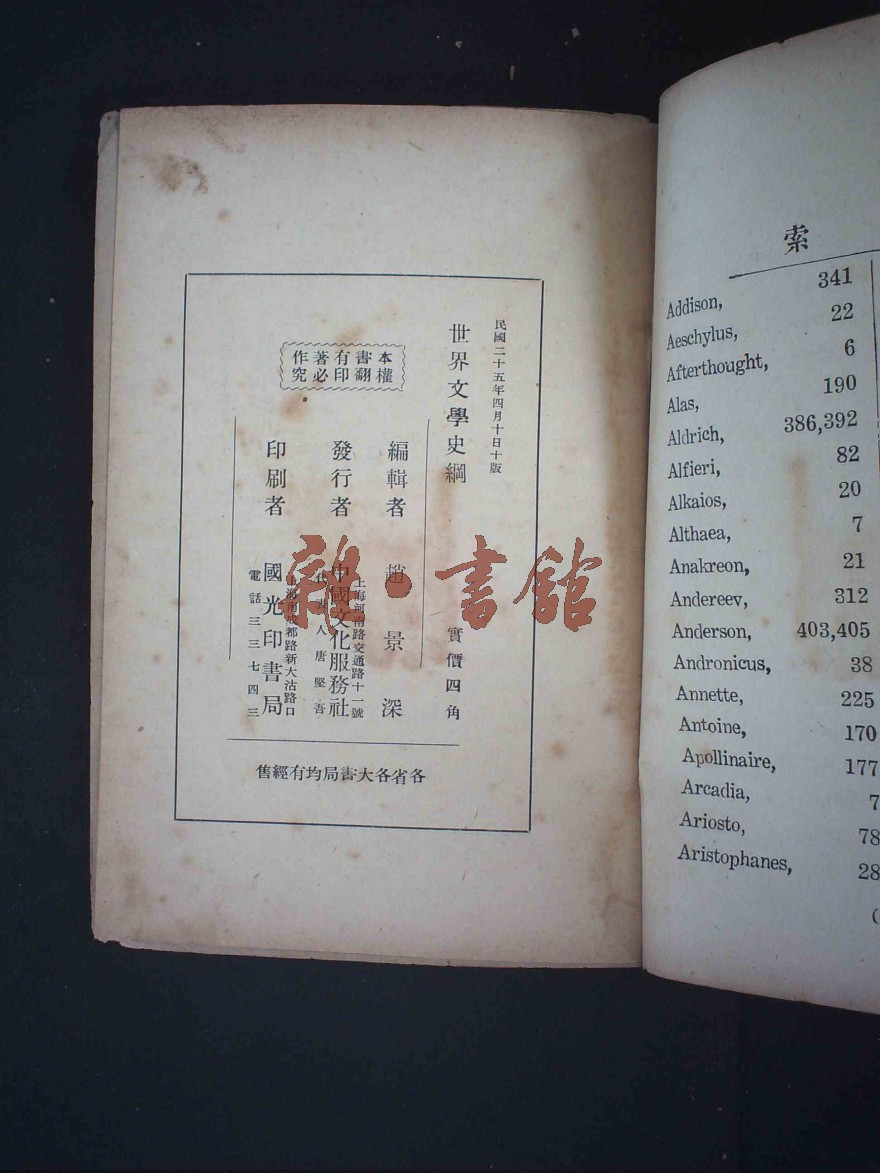 民國二十五年四月十日十版
世界文學史綱
實價四角
本書有著作
權翻印必究
編輯者 趙景深
發行者 中國文化服務社
上海河南路交通路十一號
代表人唐堅吾
印刷者 國光印書局
上海南成都路新大沽路口
電話三三七四三
各省各大書局均有經售
雜·書館
索
Addison, 341
Aeschylus, 22
Afterthought, 6
Alas, 190
Aldrich, 386,392
Alfieri, 82
Alkaios, 20
Althaea, 7
Anakreon, 21
Andereev, 312
Anderson, 403,405
Andronicus, 38
Annette, 225
Antoine, 170
Apollinaire, 177
Arcadia, 7
Ariosto, 78
Aristophanes, 28
(